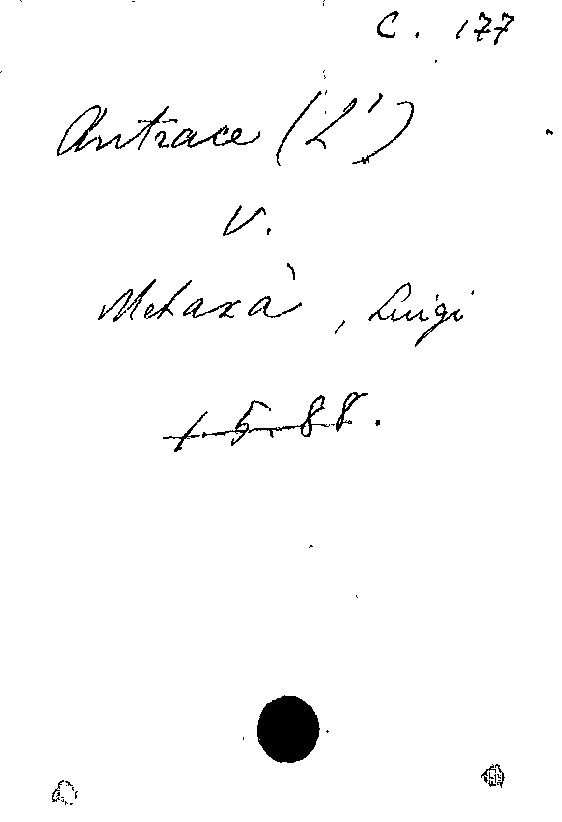 C. 177
Antrace (L')
V.
Metaxà, Luigi
1.5.88.